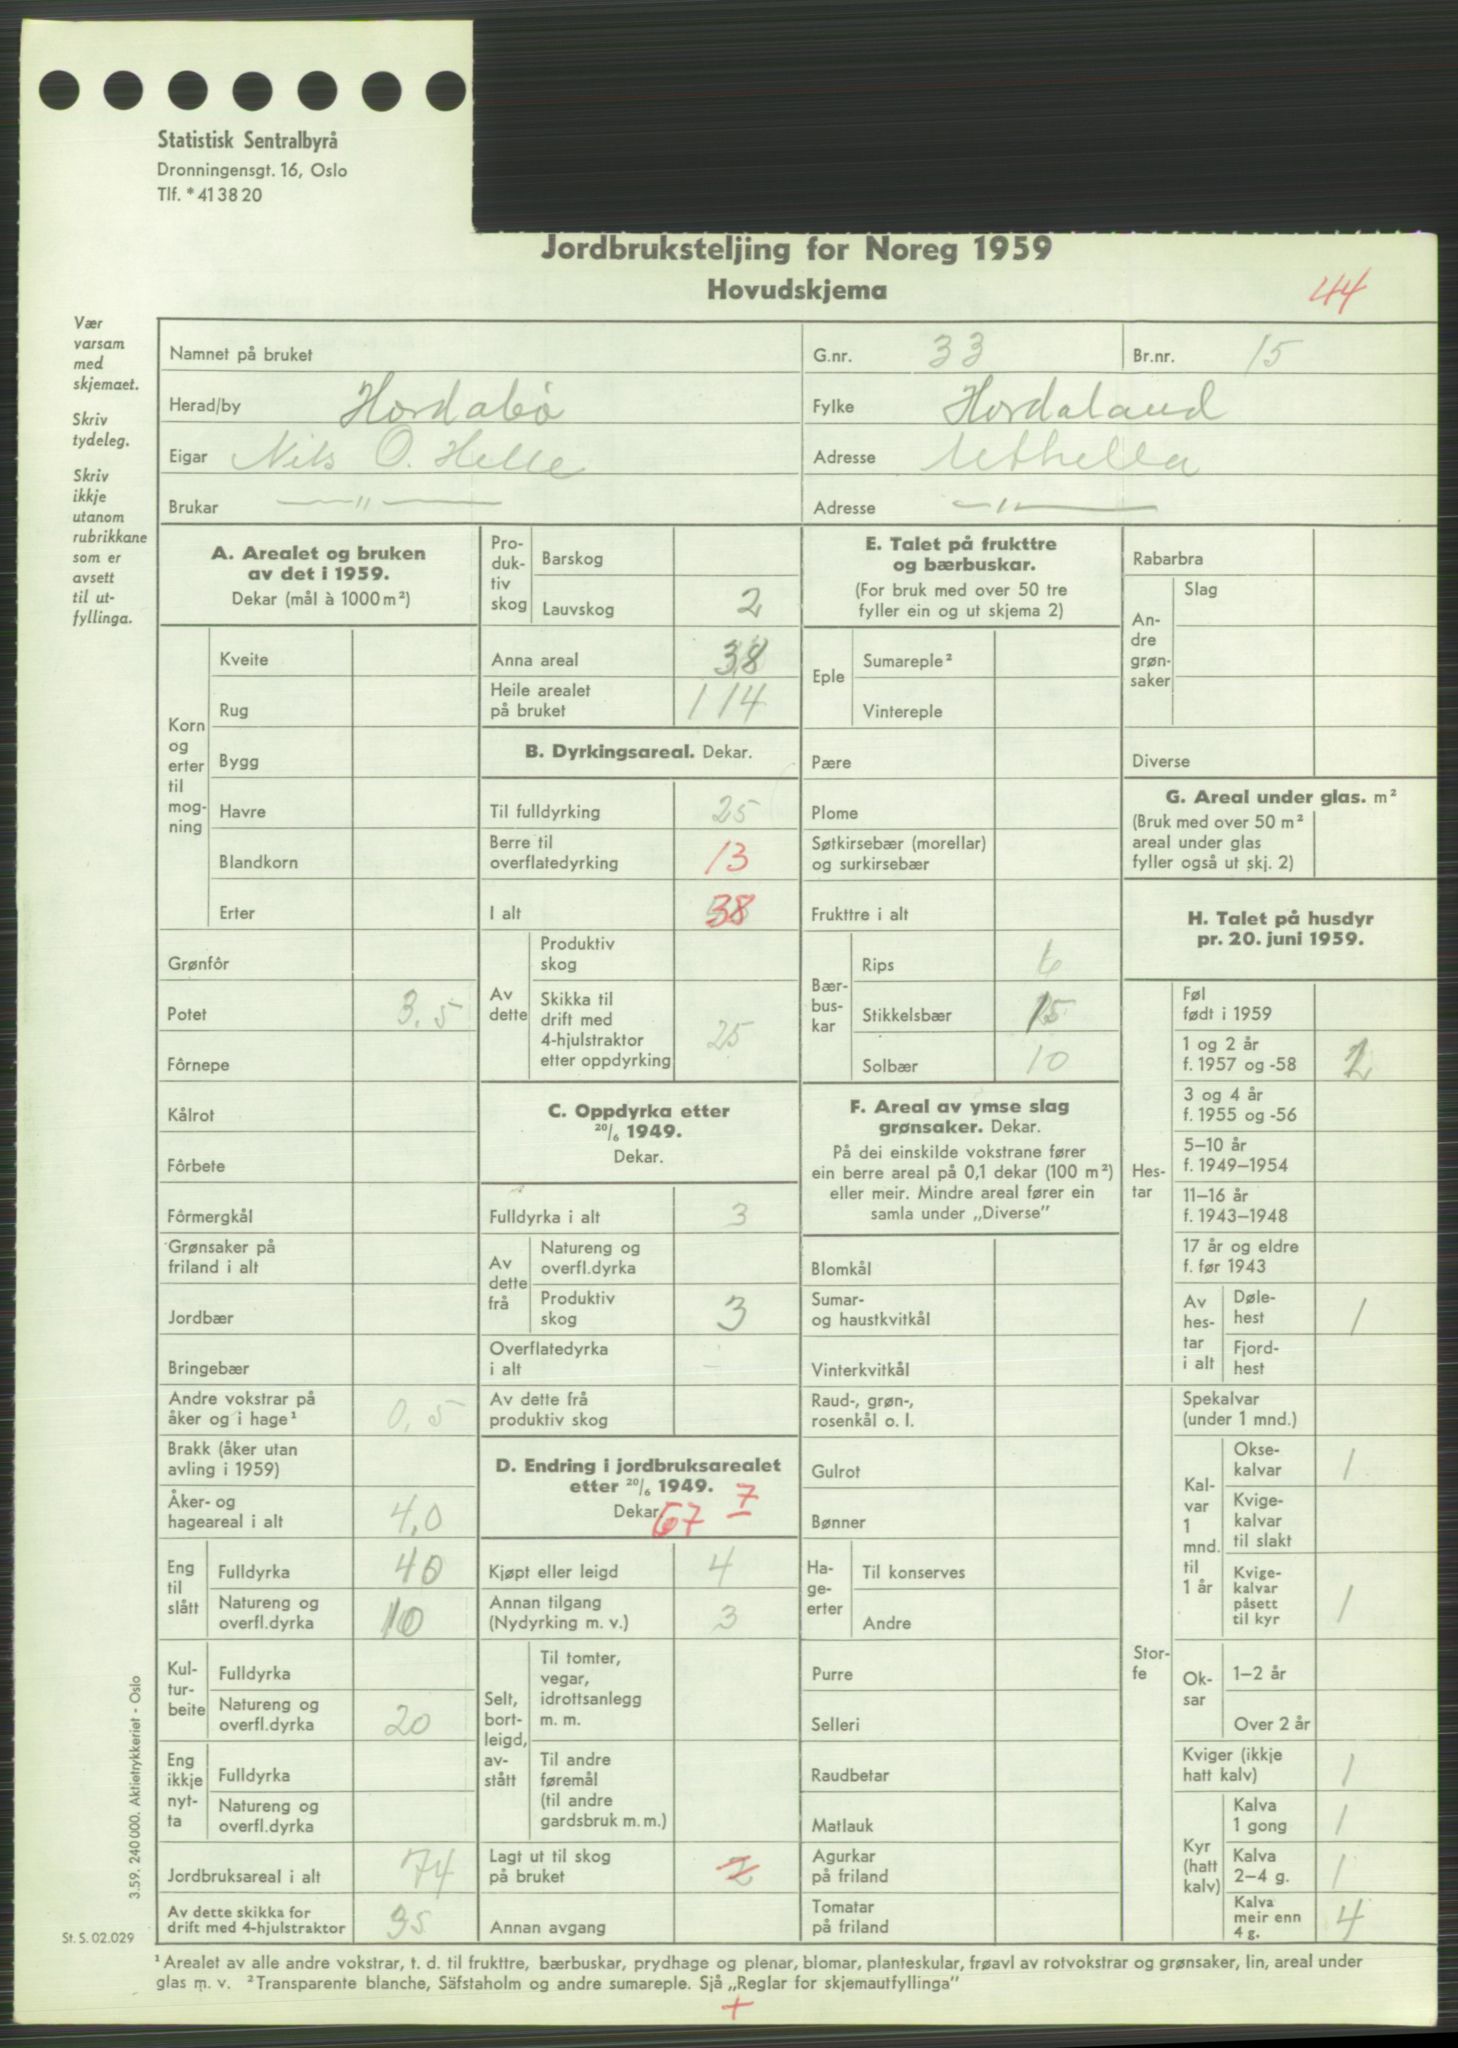 Statistisk Sentralbyrå
Dronningensgt. 16, Oslo
Tlf. *41 38 20
Jordbruksteljing for Noreg 1959
Hovudskjema
44
Vær
varsam
med
skjemaet.
Skriv
tydeleg.
Skriv
ikkje
utanom
rubrikkane
som er
avsett
til ut-
fyllinga.
Namnet på bruket
G.nr. 33
Br.nr. 15
Herad/by Hordabø
Fylke Hordaland
Eigar Nils O. Helle
Adresse Uthella
Brukar —〃—
Adresse —〃—
A. Arealet og bruken
av det i 1959.
Dekar (mål à 1000 m²)
Korn
og
erter
til
mog-
ning
Kveite
Rug
Bygg
Havre
Blandkorn
Erter
Grønfôr
Potet 3,5
Fôrnepe
Kålrot
Fôrbete
Fôrmergkål
Grønsaker på
friland i alt
Jordbær
Bringebær
Andre vokstrar på
åker og i hage¹ 0,5
Brakk (åker utan
avling i 1959)
Åker- og
hageareal i alt 4,0
Eng
til
slått
Fulldyrka 40
Natureng og
overfl.dyrka 10
Kul-
tur-
beite
Fulldyrka
Natureng og
overfl.dyrka 20
Eng
ikkje
nyt-
ta
Fulldyrka
Natureng og
overfl.dyrka
Jordbruksareal i alt 74
Av dette skikka for
drift med 4-hjulstraktor 35
Pro-
duk-
tiv
skog
Barskog
Lauvskog 2
Anna areal 38
Heile arealet
på bruket 114
B. Dyrkingsareal. Dekar.
Til fulldyrking 25
Berre til
overflatedyrking 13
I alt 38
Av
dette
Produktiv
skog
Skikka til
drift med
4-hjulstraktor
etter oppdyrking 25
C. Oppdyrka etter
20/6 1949.
Dekar.
Fulldyrka i alt 3
Av
dette
frå
Natureng og
overfl.dyrka
Produktiv
skog 3
Overflatedyrka
i alt –
Av dette frå
produktiv skog
D. Endring i jordbruksarealet
etter 20/6 1949. 7
Dekar. 67
Kjøpt eller leigd 4
Annan tilgang
(Nydyrking m. v.) 3
Selt,
bort-
leigd,
av-
stått
Til tomter,
vegar,
idrottsanlegg
m. m.
Til andre
føremål
(til andre
gardsbruk m. m.)
Lagt ut til skog
på bruket 2
Annan avgang
E. Talet på frukttre
og bærbuskar.
(For bruk med over 50 tre
fyller ein og ut skjema 2)
Eple
Sumareple²
Vintereple
Pære
Plome
Søtkirsebær (morellar)
og surkirsebær
Frukttre i alt
Bær-
bus-
kar
Rips 6
Stikkelsbær 15
Solbær 10
F. Areal av ymse slag
grønsaker. Dekar.
På dei einskilde vokstrane fører
ein berre areal på 0,1 dekar (100 m²)
eller meir. Mindre areal fører ein
samla under „Diverse”
Blomkål
Sumar-
og haustkvitkål
Vinterkvitkål
Raud-, grøn-,
rosenkål o. l.
Gulrot
Bønner
Ha-
ge-
erter
Til konserves
Andre
Purre
Selleri
Raudbetar
Matlauk
Agurkar
på friland
Tomatar
på friland
Rabarbra
An-
dre
grøn-
saker
Slag
Diverse
G. Areal under glas. m²
(Bruk med over 50 m²
areal under glas
fyller også ut skj. 2)
H. Talet på husdyr
pr. 20. juni 1959.
Hes-
tar
Føl
født i 1959
1 og 2 år
f. 1957 og -58 2
3 og 4 år
f. 1955 og -56
5–10 år
f. 1949–1954
11–16 år
f. 1943–1948
17 år og eldre
f. før 1943
Av
hes-
tar
i alt
Døle-
hest 1
Fjord-
hest
Stor-
fe
Spekalvar
(under 1 mnd.)
Kal-
var
1
mnd.
til
1 år
Okse-
kalvar 1
Kvige-
kalvar
til slakt
Kvige-
kalvar
påsett
til kyr 1
Ok-
sar
1–2 år
Over 2 år
Kviger (ikkje
hatt kalv) 1
Kyr
(hatt
kalv)
Kalva
1 gong 1
Kalva
2–4 g. 1
Kalva
meir enn
4 g. 4
3.59. 240 000. Aktietrykkeriet - Oslo
St. S. 02.029
¹ Arealet av alle andre vokstrar, t. d. til frukttre, bærbuskar, prydhage og plenar, blomar, planteskular, frøavl av rotvokstrar og grønsaker, lin, areal under
glas m. v. ² Transparente blanche, Säfstaholm og andre sumareple. Sjå „Reglar for skjemautfyllinga”
+